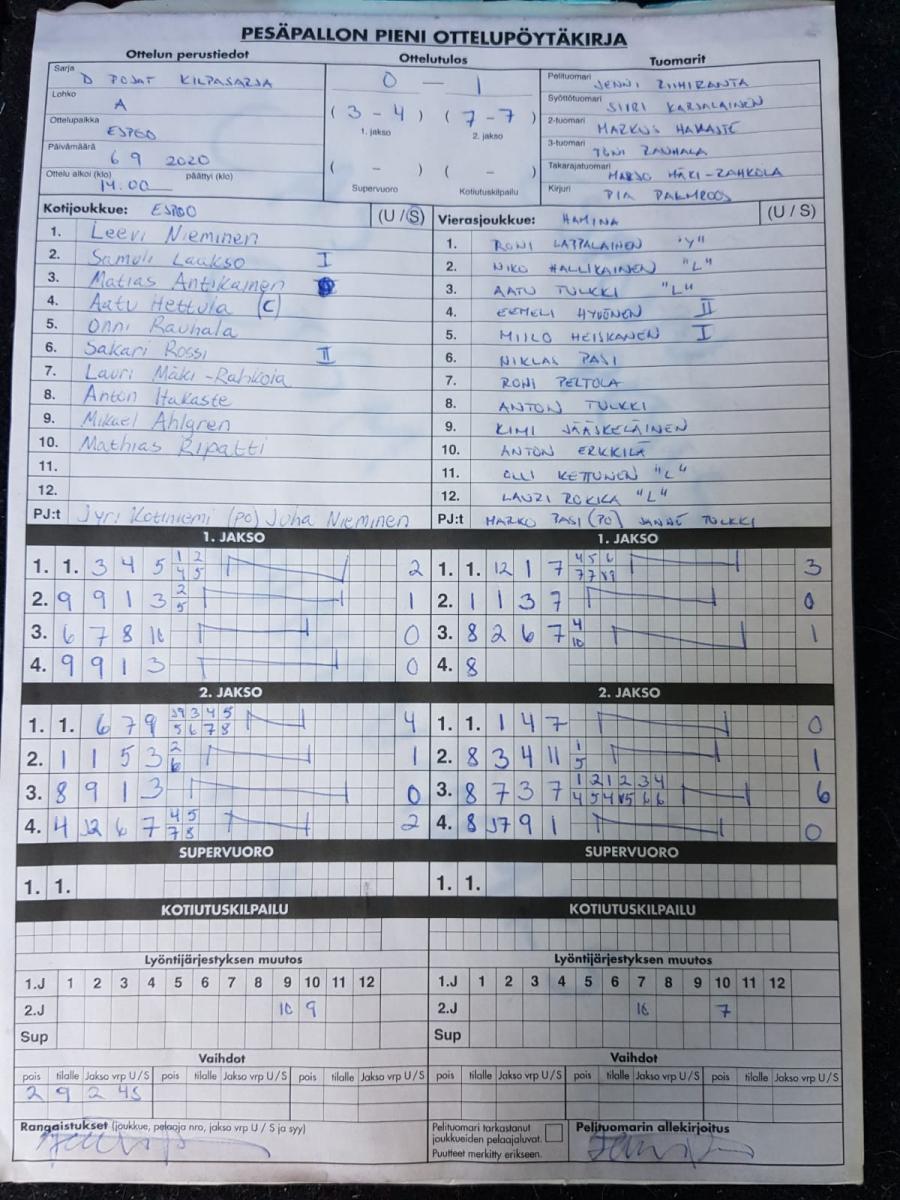 PESÄPALLON PIENI OTTELUPÖYTÄKIRJA
Ottelun perustiedot
Sarja D POJAT KILPASARJA
Lohko A
Ottelupaikka ESPOO
Päivämäärä 6 9 2020
Ottelu alkoi (klo) 14.00 päättyi (klo)
Ottelutulos
0 - 1
(3 - 4) (7 - 7)
1. jakso 2. jakso
( - ) ( - )
Supervuoro Kotiutuskilpailu
Tuomarit
Pelituomari JENNI RIIHIRANTA
Syöttötuomari SIIRI KARJALAINEN
2-tuomari MARKUS HAKASTE
3-tuomari TONI RAUHALA
Takarajatuomari MARJO MÄKI-RAHKOLA
Kirjuri PIA PALMROOS
Kotijoukkue: ESPOO (U / S)
1. Leevi Nieminen
2. Samuli Laakso I
3. Matias Antikainen
4. Aatu Hettula (C)
5. Onni Rauhala
6. Sakari Rossi II
7. Lauri Mäki-Rahkola
8. Anton Hakaste
9. Mikael Ahlgren
10. Mathias Ripatti
11.
12.
PJ:t Jyri Kotiniemi (PO) Juha Nieminen
Vierasjoukkue: HAMINA (U / S)
1. RONI LAPPALAINEN "V"
2. NIKO HALLIKAINEN "L"
3. AATU TULKKI "L"
4. EEMELI HYVÖNEN II
5. MIILO HEISKANEN I
6. NIKLAS PASI
7. RONI PELTOLA
8. ANTON TULKKI
9. KIMI JÄÄSKELÄINEN
10. ANTON ERKKILÄ
11. OLLI KETTUNEN "L"
12. LAURI ROKKA "L"
PJ:t MARKO PASI (PO) JANNE TULKKI
1. JAKSO
1. 1. 3 4 5 1 2 4 5 2
2. 9 9 1 3 2 5 1
3. 6 7 8 10 0
4. 9 9 1 3 0
1. JAKSO
1. 1. 12 1 7 4 5 6 3
2. 1 1 3 7 0
3. 8 2 6 7 4 10 1
4. 8
2. JAKSO
1. 1. 6 7 9 3 4 5 5 6 7 8 4
2. 1 1 5 3 2 6 1
3. 8 9 1 3 0
4. 4 12 6 7 4 5 7 8 2
2. JAKSO
1. 1. 1 4 7 0
2. 8 3 4 11 1 5 1
3. 8 7 3 7 1 2 1 2 3 4 6
4. 8 9 1 0
SUPERVUORO
1. 1.
SUPERVUORO
1. 1.
KOTIUTUSKILPAILU
KOTIUTUSKILPAILU
Lyöntijärjestyksen muutos
1.J 1 2 3 4 5 6 7 8 9 10 11 12
2.J 10 9
Sup
Lyöntijärjestyksen muutos
1.J 1 2 3 4 5 6 7 8 9 10 11 12
2.J 10 7
Sup
Vaihdot
pois tilalle Jakso vrp U/S pois tilalle Jakso vrp U/S pois tilalle Jakso vrp U/S
2 9 2 4S
Vaihdot
pois tilalle Jakso vrp U/S pois tilalle Jakso vrp U/S pois tilalle Jakso vrp U/S
Rangaistukset (joukkue, pelaaja nro, jakso vrp U / S ja syy)
Pelituomari tarkastanut
joukkueiden pelaajaluvat.
Puutteet merkitty erikseen.
Pelituomarin allekirjoitus